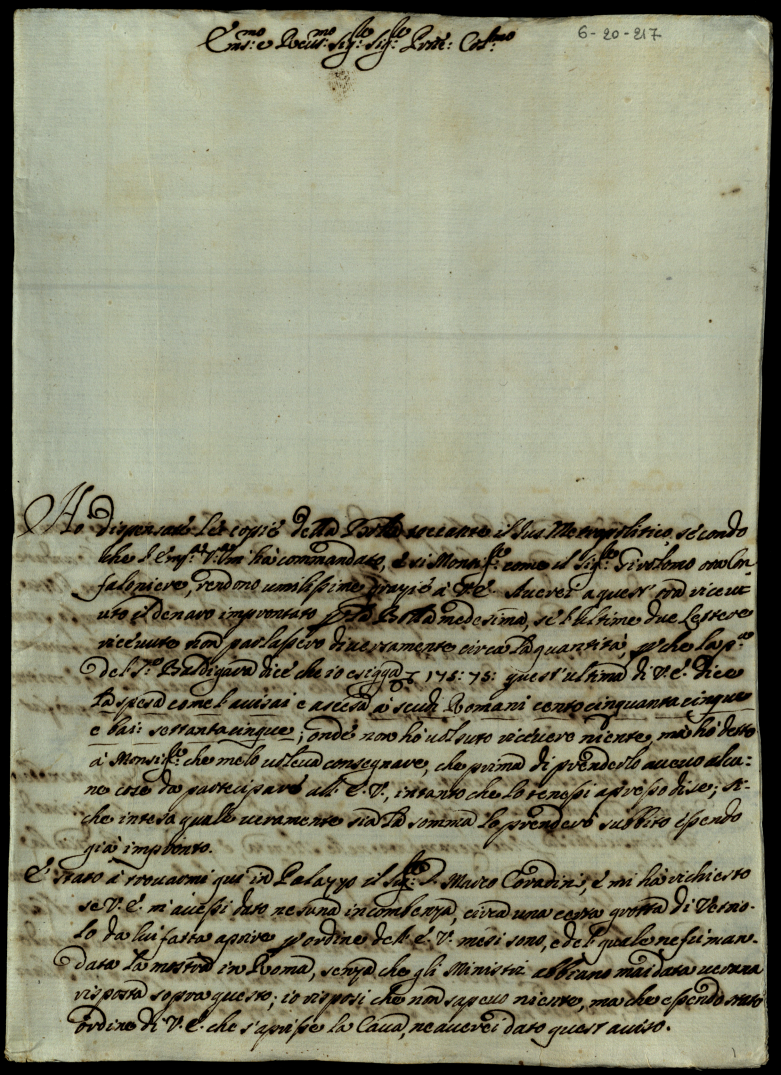 Em.mo e Reu.mo Sig.re Sig.re Prõne Col.mo
6-20-217
Ho dispensate le copie della Bolla toccante il Jus Metropolitico, secondo
che l'Em.za V.ra mi hà commandato, e si Mons.re come il Sig.re Girolamo ora Con-
faloniere, rendono umilissime grazie à V.E. Auerei a quest' ora riceu-
uto il denaro improntato p la Bolla medesima, se l'ultime due lettere
riceuute non parlassero diuersamente circa la quantità, p che la p.a
del S.r Baldigara dice che io esigga 175: 75: quest'ultima di V.E. dice
la spesa come l'auisai e ascesa à scudi Romani cento cinquanta cinque
e bai: settanta cinque; onde non hò uolsuto riceuere niente, ma hò detto
à Mons.re che me lo uoleua consegnare, che prima di prenderlo aueuo alcu-
ne cose da partecipare all' E.V., intanto che lo tenessi apresso di se; si-
che intesa quale ueramente sia la somma lo prenderò subbito essendo
già impronto.
È stato à trouarmi quì in Palazzo il Sig.re D. Marco Coradini, e mi hà richiesto
se V.E. m'auessi dato nesuna incombenza, circa una certa grotta di Vetrio-
lo da lui fatta aprire p ordine dell' E.V. mesi sono, e del quale ne fù man-
data la mostra in Roma, senza che gli Ministri abbiano mai data ueruna
risposta sopra questo; io risposi che non sapeuo niente, ma che essendo stato
ordine di V.E. che s'aprisse la Caua, ne auerei dato quest' auiso.